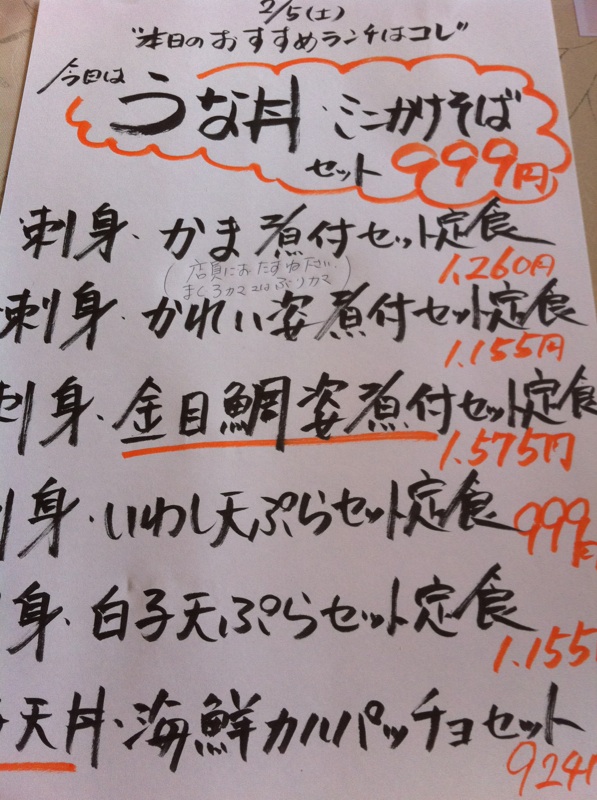 2/5(土)
"本日のおすすめランチはコレ"
今日は
うな丼・ミニかけそば
セット 999円
刺身・かま煮付セット定食
1,260円
(店員におたずねください
まぐろカマ又はぶりカマ)
刺身・かれい姿煮付セット定食
1,155円
刺身・金目鯛姿煮付セット定食
1,575円
身・いわし天ぷらセット定食
999円
身・白子天ぷらセット定食
1,155
天丼・海鮮カルパッチョセット
924